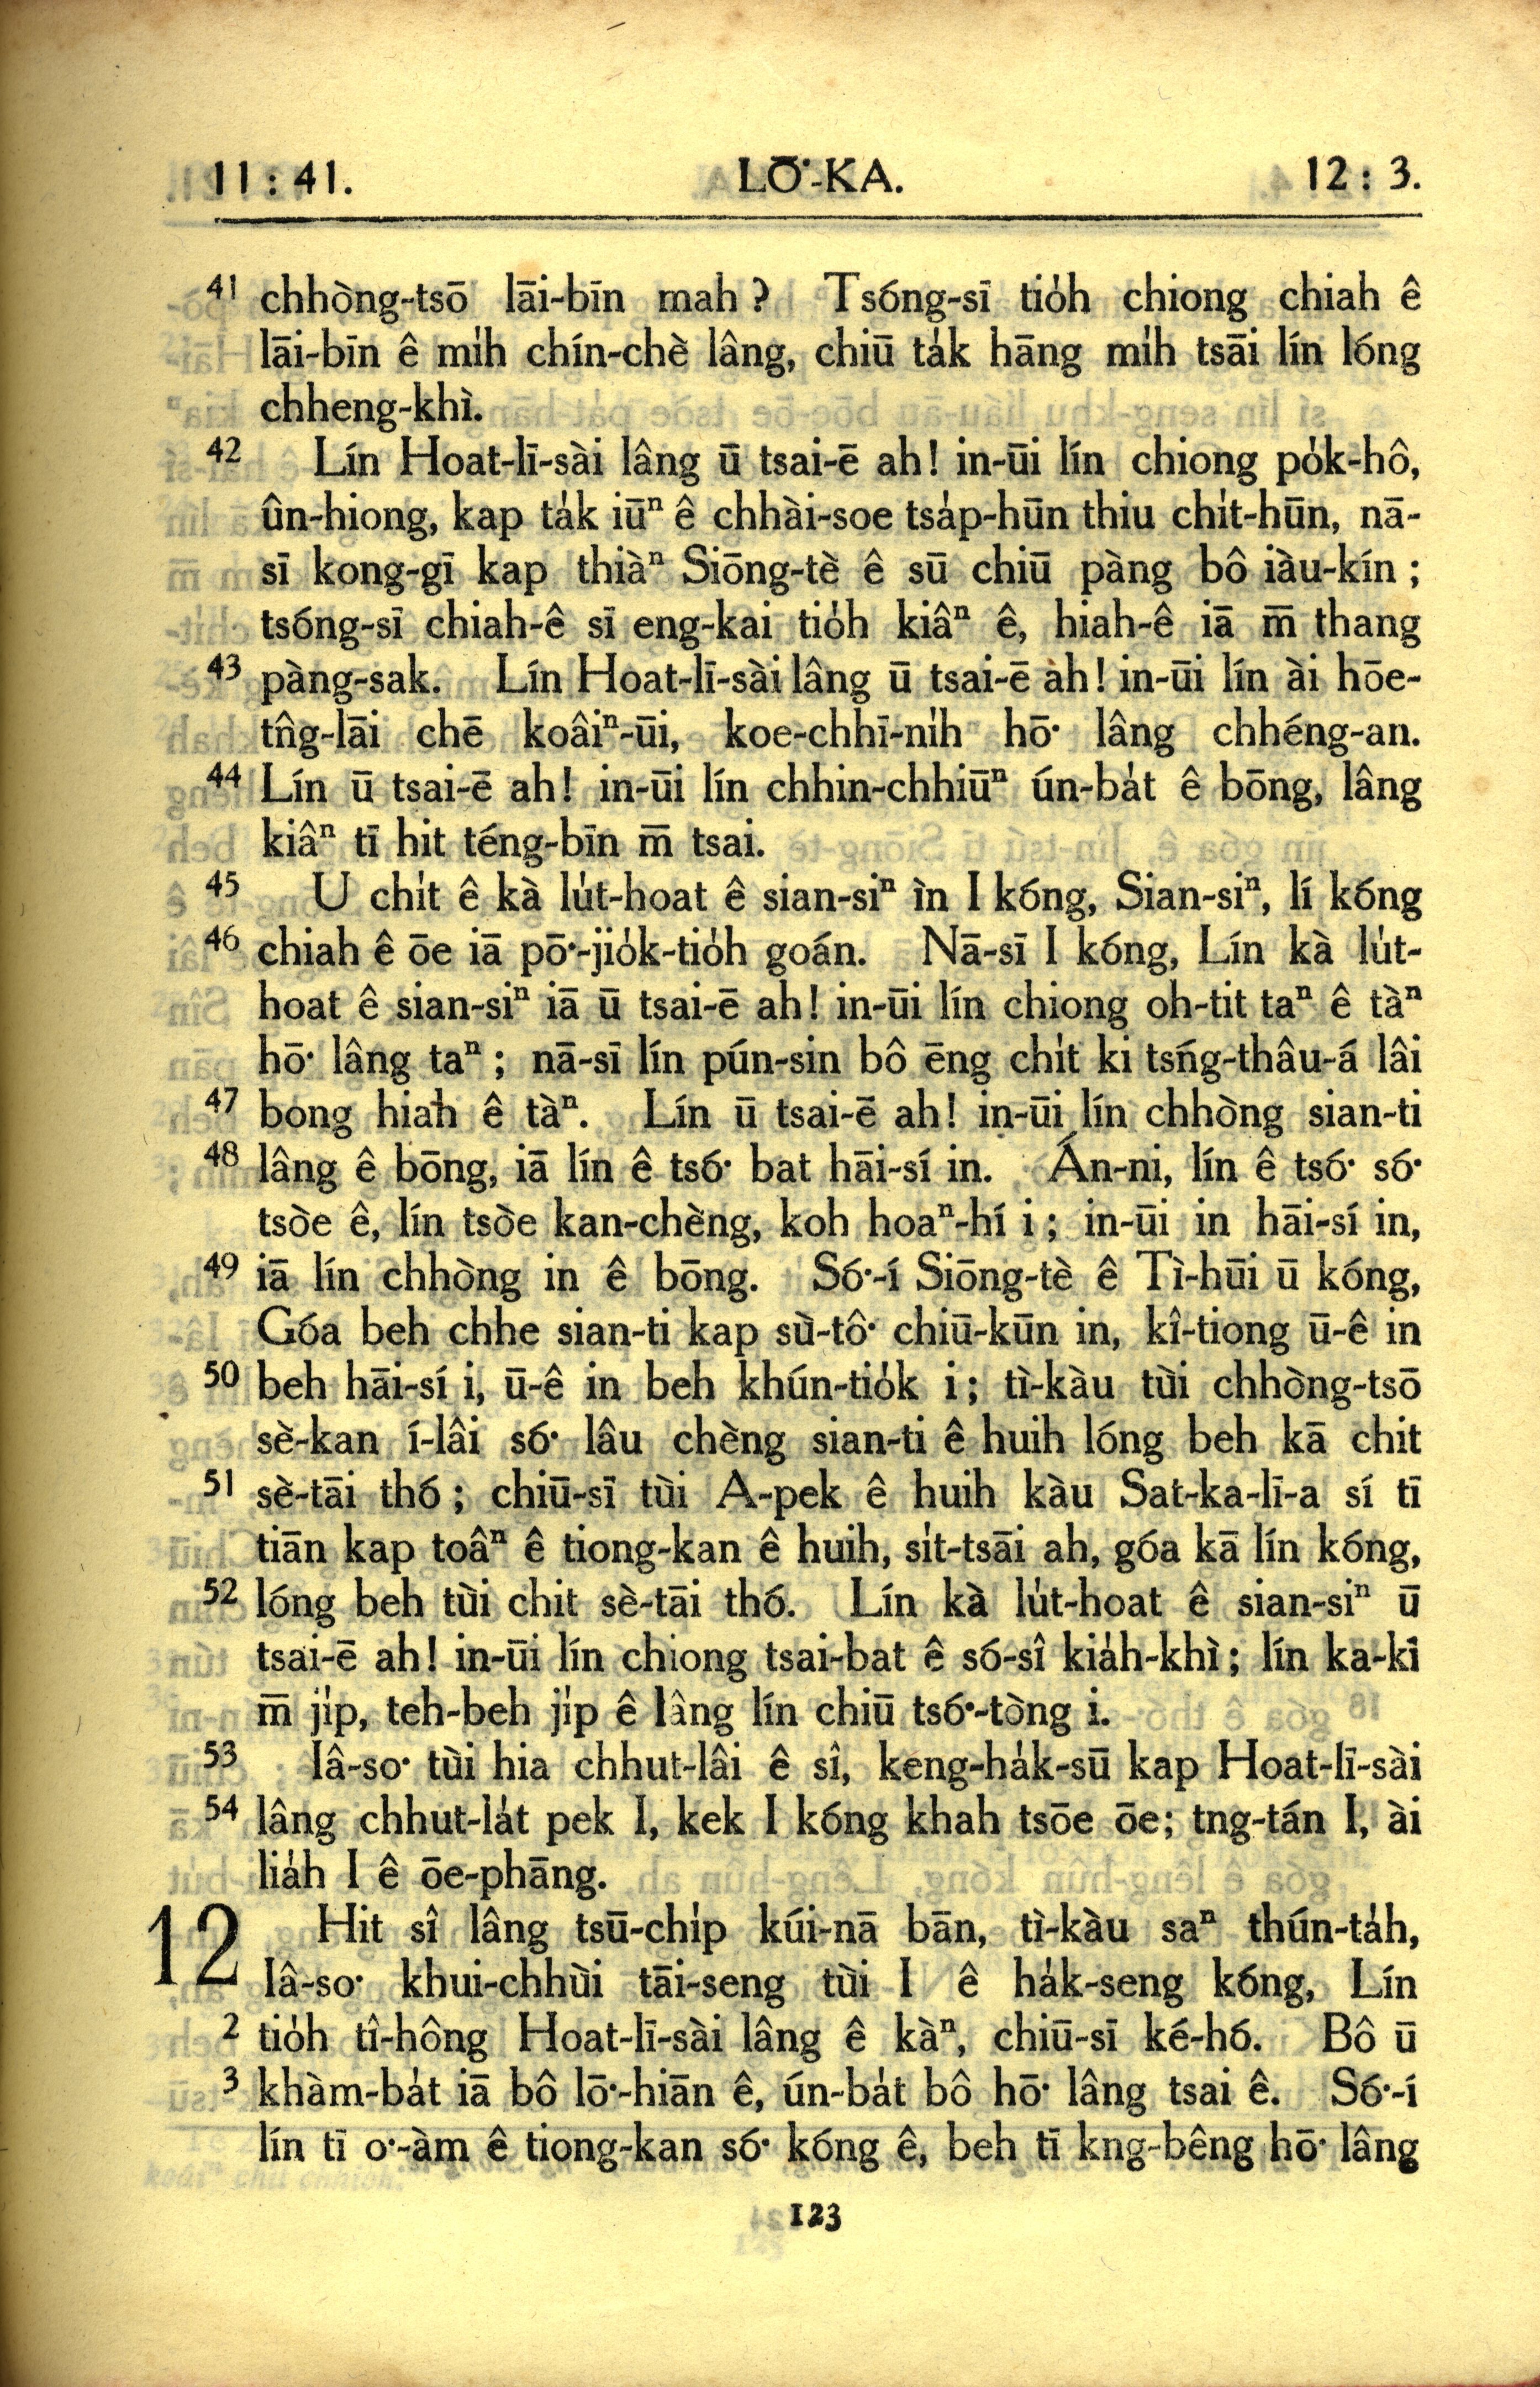 11 : 41. LŌ͘-KA. 12 : 3.
41 chhòng-tsō lāi-bīn mah ? Tsóng-sī tio̍h chiong chiah ê
lāi-bīn ê mi̍h chín-chè lâng, chiū ta̍k hāng mi̍h tsāi lín lóng
chheng-khì.
42 Lín Hoat-lī-sài lâng ū tsai-ē ah! in-ūi lín chiong po̍k-hô,
ûn-hiong, kap ta̍k iūⁿ ê chhài-soe tsa̍p-hūn thiu chi̍t-hūn, nā-
sī kong-gī kap thiàⁿ Siōng-tè ê sū chiū pàng bô iàu-kín ;
tsóng-sī chiah-ê sī eng-kai tio̍h kiâⁿ ê, hiah-ê iā m̄ thang
43 pàng-sak. Lín Hoat-lī-sài lâng ū tsai-ē ah! in-ūi lín ài hōe-
tn̂g-lāi chē koâiⁿ-ūi, koe-chhī-ni̍h hō͘ lâng chhéng-an.
44 Lín ū tsai-ē ah! in-ūi lín chhin-chhiūⁿ ún-ba̍t ê bōng, lâng
kiâⁿ tī hit téng-bīn m̄ tsai.
45 U chi̍t ê kà lu̍t-hoat ê sian-siⁿ ìn I kóng, Sian-siⁿ, lí kóng
46 chiah ê ōe iā pō͘-jio̍k-tio̍h goán. Nā-sī I kóng, Lín kà lu̍t-
hoat ê sian-siⁿ iā ū tsai-ē ah! in-ūi lín chiong oh-tit taⁿ ê tàⁿ
hō͘ lâng taⁿ ; nā-sī lín pún-sin bô ēng chi̍t ki tsńg-thâu-á lâi
47 bong hiah ê tàⁿ. Lín ū tsai-ē ah! in-ūi lín chhòng sian-ti
48 lâng ê bōng, iā lín ê tsó͘ bat hāi-sí in. Án-ni, lín ê tsó͘ só͘
tsòe ê, lín tsòe kan-chèng, koh hoaⁿ-hí i ; in-ūi in hāi-sí in,
49 iā lín chhòng in ê bōng. Só͘-í Siōng-tè ê Tì-hūi ū kóng,
Góa beh chhe sian-ti kap sù-tô͘ chiū-kūn in, kî-tiong ū-ê in
50 beh hāi-sí i, ū-ê in beh khún-tio̍k i ; tì-kàu tùi chhòng-tsō
sè-kan í-lâi só͘ lâu chèng sian-ti ê huih lóng beh kā chit
51 sè-tāi thó ; chiū-sī tùi A-pek ê huih kàu Sat-ka-lī-a sí tī
tiān kap toâⁿ ê tiong-kan ê huih, si̍t-tsāi ah, góa kā lín kóng,
52 lóng beh tùi chit sè-tāi thó. Lín kà lu̍t-hoat ê sian-siⁿ ū
tsai-ē ah! in-ūi lín chiong tsai-bat ê só-sî kia̍h-khì ; lín ka-kī
m̄ ji̍p, teh-beh ji̍p ê lâng lín chiū tsó͘-tòng i.
53 Iâ-so͘ tùi hia chhut-lâi ê sî, keng-ha̍k-sū kap Hoat-lī-sài
54 lâng chhut-la̍t pek I, kek I kóng khah tsōe ōe; tng-tán I, ài
lia̍h I ê ōe-phāng.
12 Hit sî lâng tsū-chi̍p kúi-nā bān, tì-kàu saⁿ thún-ta̍h,
Iâ-so͘ khui-chhùi tāi-seng tùi I ê ha̍k-seng kóng, Lín
2 tio̍h tî-hông Hoat-lī-sài lâng ê kàⁿ, chiū-sī ké-hó. Bô ū
3 khàm-ba̍t iā bô lō͘-hiān ê, ún-ba̍t bô hō͘ lâng tsai ê. Só͘-í
lín tī o͘-àm ê tiong-kan só͘ kóng ê, beh tī kng-bêng hō͘ lâng
123